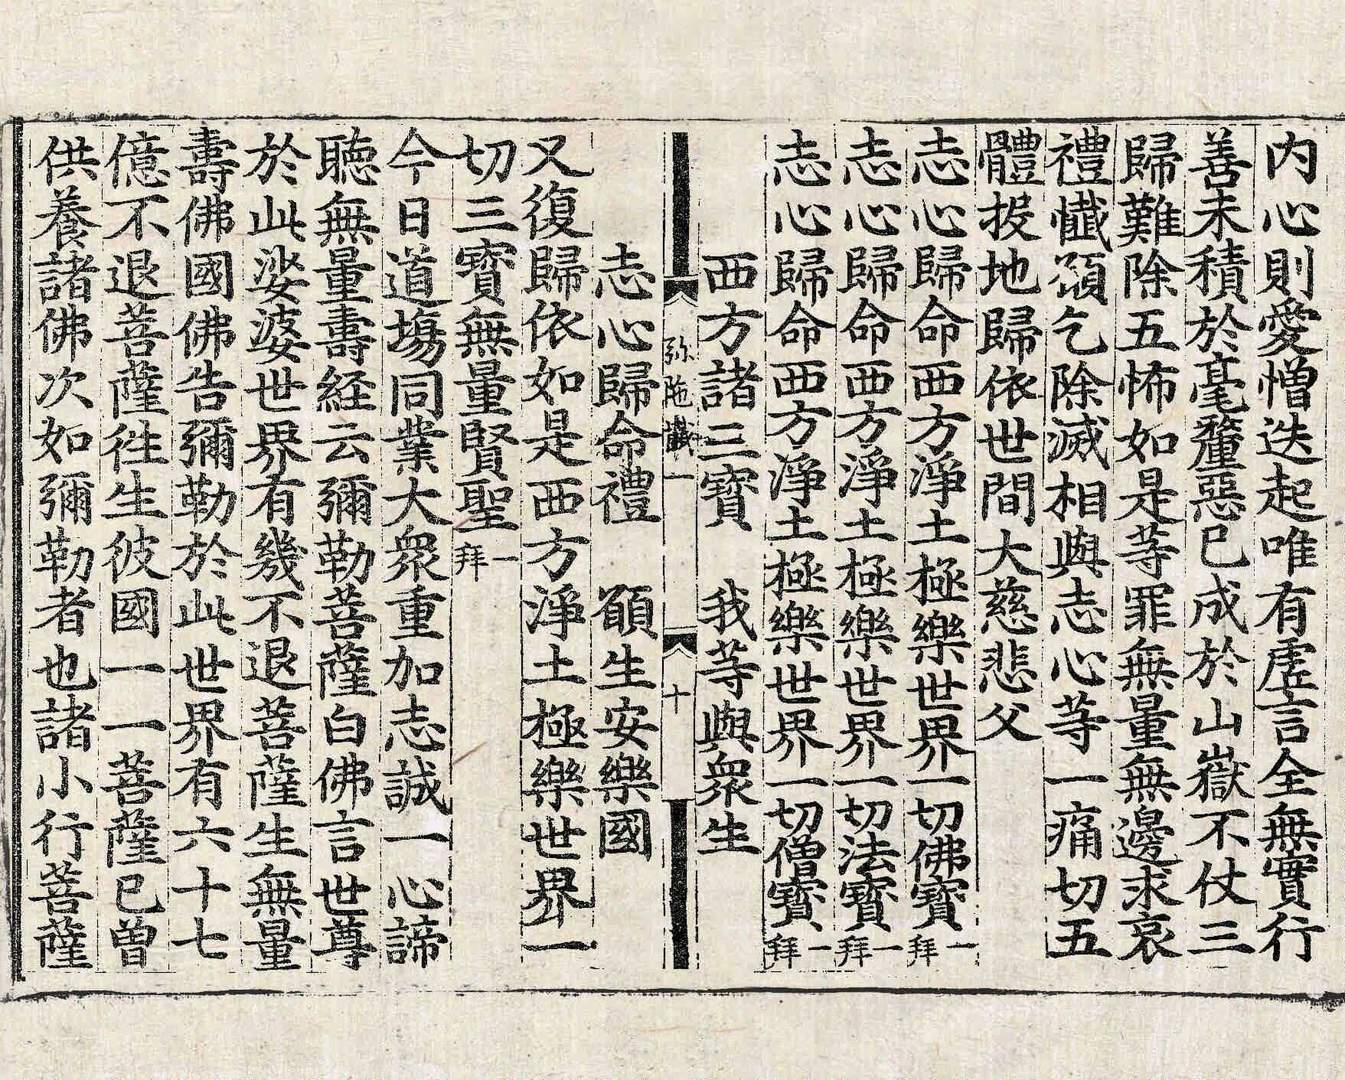 内心則愛憎迭起唯有虛言全無實行
善未積於毫釐惡已成於山嶽不仗三
歸難除五怖如是等罪無量無邊求哀
禮懺頟乞除滅相與志心等一痛切五
體投地歸依世間大慈悲父
志心歸命西方淨土極樂世界一切佛寶一拜
志心歸命西方淨土極樂世界一切法寶一拜
志心歸命西方淨土極樂世界一切僧寶一拜
西方諸三寶　我等與衆生
弥陁懺一　十
志心歸命禮　頟生安樂國
又復歸依如是西方淨土極樂世界一
切三寶無量賢聖一拜
今日道場同業大衆重加志誠一心諦
聽無量壽経云彌勒菩薩白佛言世尊
於此娑婆世界有幾不退菩薩生無量
壽佛國佛告彌勒於此世界有六十七
億不退菩薩徃生彼國一一菩薩已曽
供養諸佛次如彌勒者也諸小行菩薩